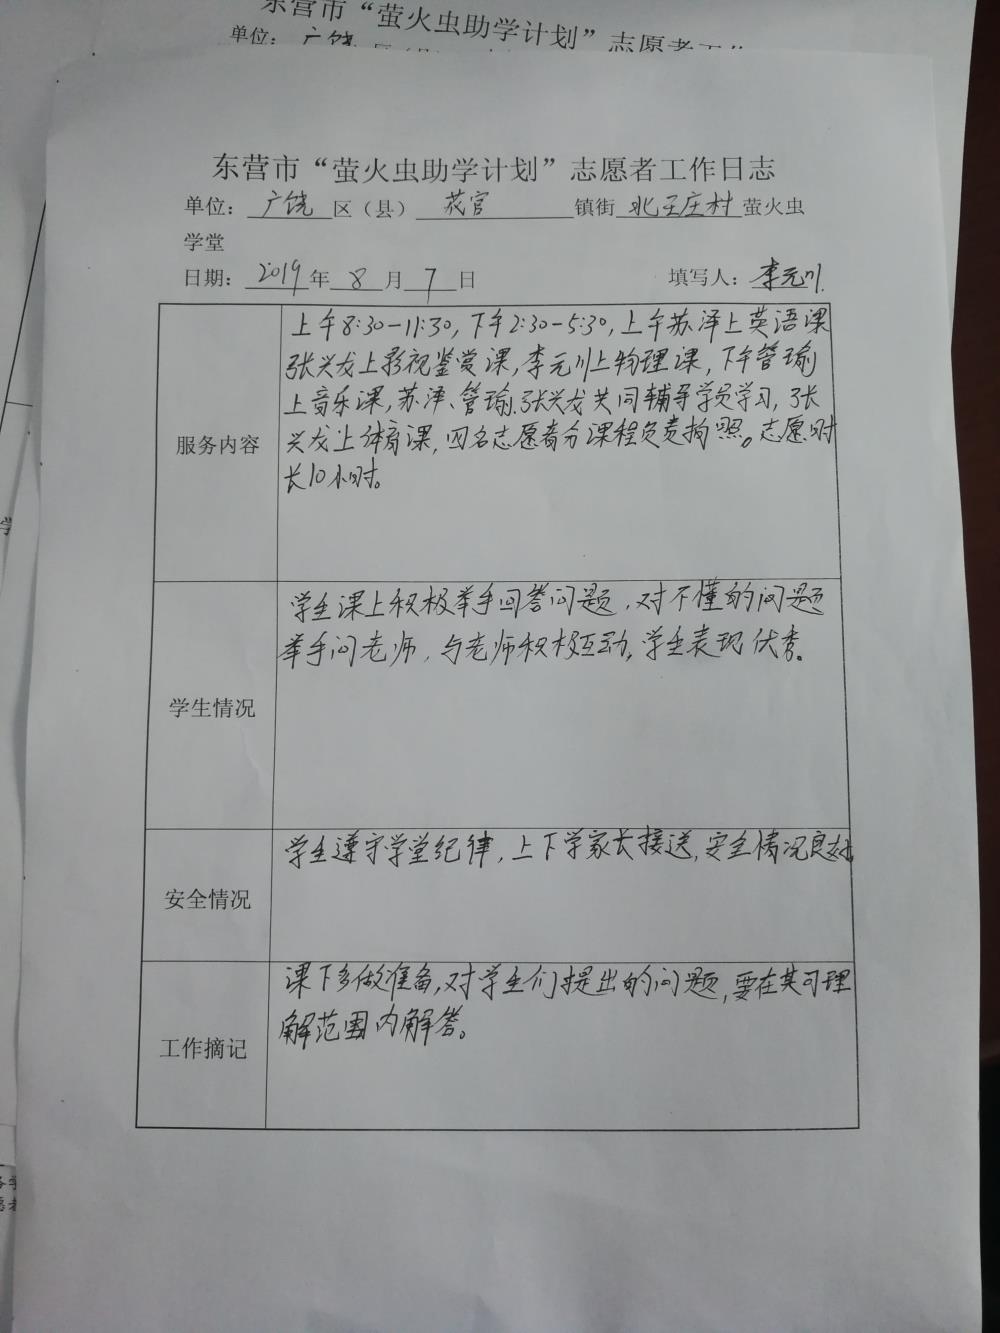 东营市“萤火虫助学计划”志愿者工
单位：广饶
东营市“萤火虫助学计划”志愿者工作日志
单位：广饶区（县）花官镇街北王庄村萤火虫
学堂
日期：2019年8月7日 填写人：李元川
服务内容
上午8:30-11:30，下午2:30-5:30，上午苏泽上英语课
张兴龙上影视鉴赏课，李元川上物理课，下午管瑜
上音乐课，苏泽、管瑜、张兴龙共同辅导学员学习，张
兴龙上体育课，四名志愿者分课程负责拍照。志愿时
长10小时。
学生情况
学生课上积极举手回答问题，对不懂的问题
举手问老师，与老师积极互动，学生表现优秀。
安全情况
学生遵守学堂纪律，上下学家长接送，安全情况良好
工作摘记
课下多做准备，对学生们提出的问题，要在其可理
解范围内解答。